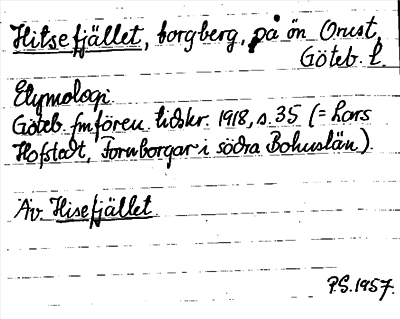 Hitsefjället, borgberg, på ön Orust,
Göteb. l.
Etymologi.
Göteb. fmfören. tidskr. 1918, s. 35 (= Lars
Hofstedt, Fornborgar i södra Bohuslän).
Äv. Hisefjället.
P.S. 1957.